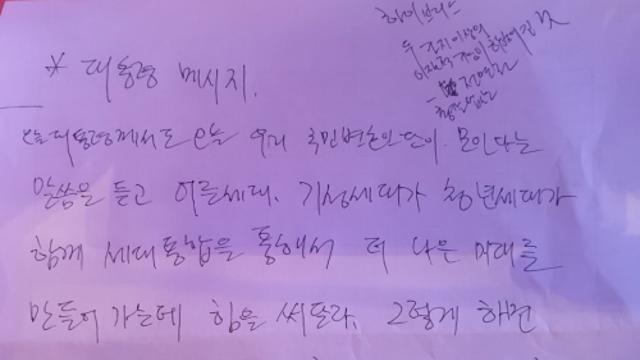 하이브리드
두 가지 이상의
* 대통령 메시지.
오늘 대통령께서도 오늘 우리 국민변호인단이 모인다는
말씀을 듣고 어른세대. 기성세대가 청년세대가
함께 세대통합을 통해서 더 나은 미래를
만들어 가는데 힘을 써달라. 그렇게 하면